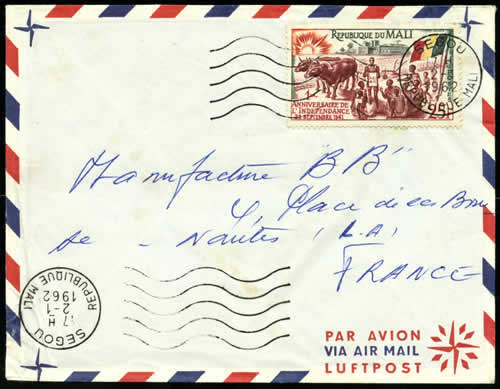 REPUBLIQUE DU MALI
1er ANNIVERSAIRE DE
L'INDEPENDANCE
22 SEPTEMBRE 1961
SEGOU
1962
REPUBLIQUE MALI
Manufacture BB"
4, Place de la Bourse
- Nantes (L.A)
FRANCE
SEGOU
17 H
2-1
1962
REPUBLIQUE MALI
PAR AVION
VIA AIR MAIL
LUFTPOST